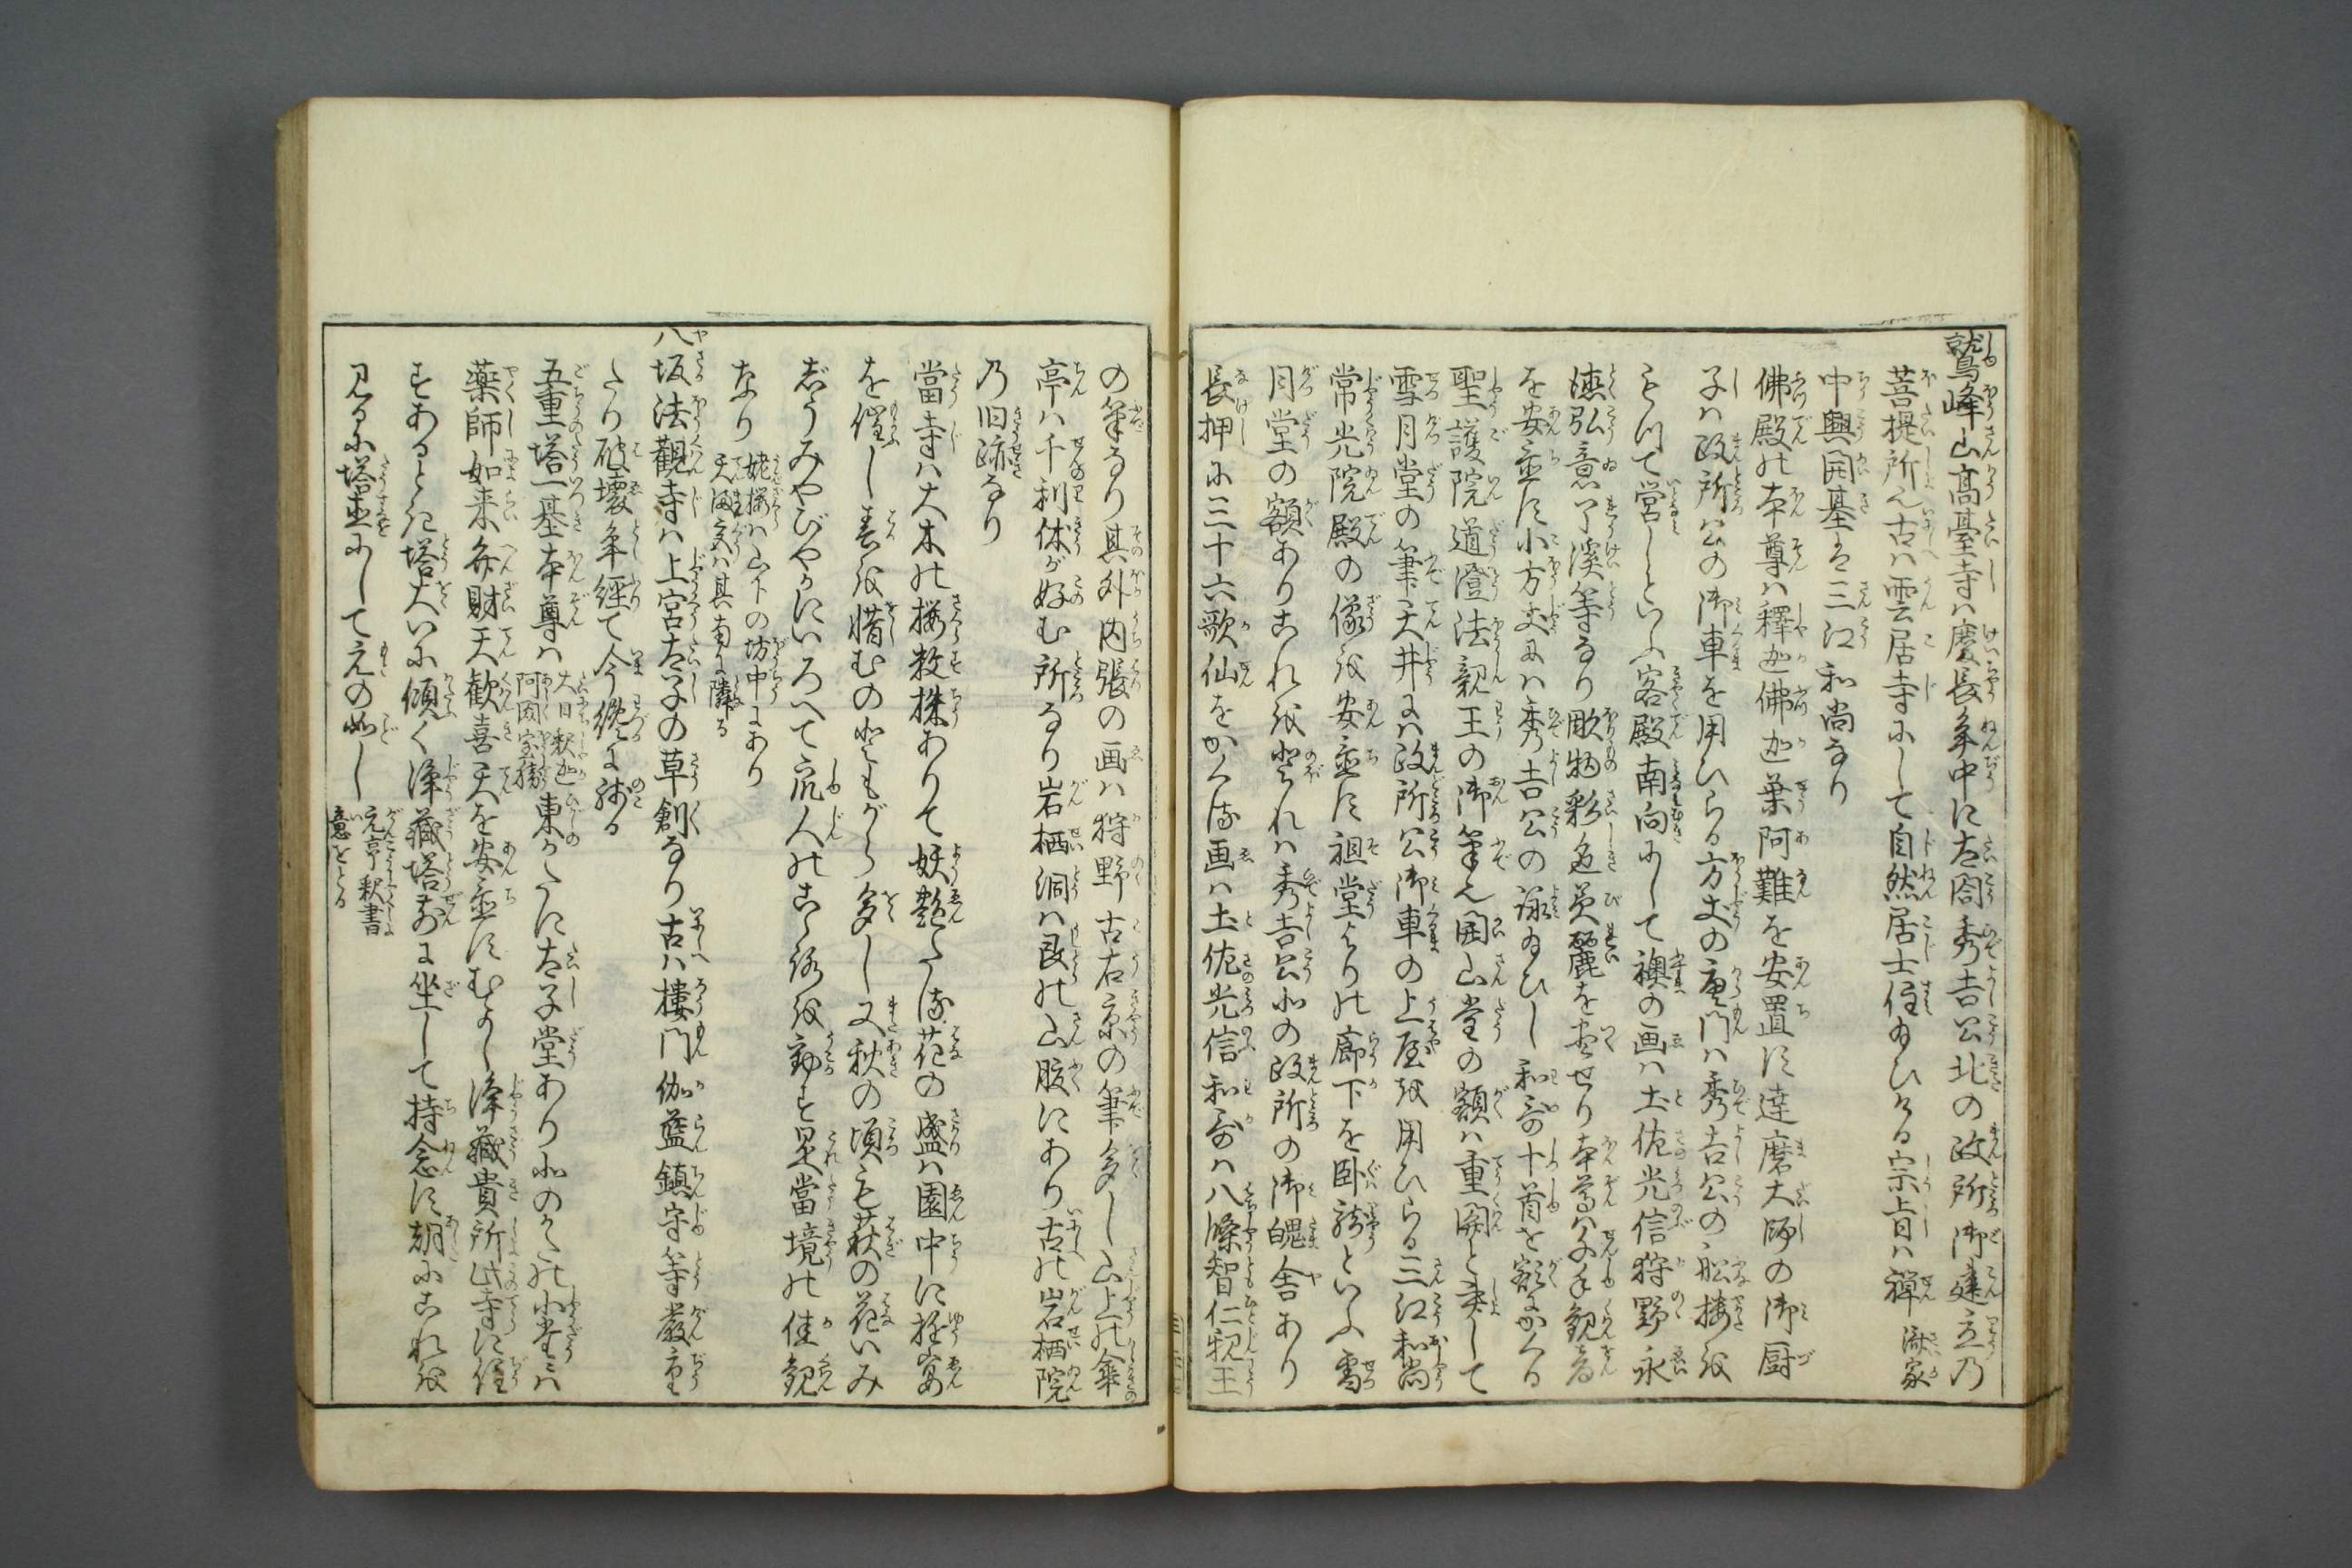 鷲峰山高臺寺ハ慶長年中に太閤秀吉公北の政所御建立乃
菩提所也古ハ雲居寺にして自然居士住給ひける宗旨ハ禪 済家
中興開基は三江和尚なり
佛殿の本尊ハ釋迦佛迦葉阿難を安置に達磨大師の御厨
子ハ政所公の御車を用ひらる方丈の唐門ハ秀吉公の舩樓を
もつて営しといふ客殿南向にして襖の画ハ土佐光信狩野永
徳弘意了溪等なり彫物彩色美麗を尽せり本尊ハ千手観音
を安置に小方丈にハ秀吉公の詠給ひし和哥十首を額にかくる
聖護院道澄法親王の御筆也開山堂の額ハ重関と書して
雪月堂の筆天井にハ政所公御車の上屋を用ひらる三江和尚
常光院殿の像を安置に祖堂よりの廊下を卧龍といふ雪
月堂の額ありこれを登れハ秀吉公北の政所の御魄舎あり
長押に三十六歌仙をかくる画ハ土佐光信和哥ハ八條智仁親王
の筆なり其外内張の画ハ狩野古右京の筆多し山上の傘
亭ハ千利休が好む所なり岩栖洞ハ艮の山腹にあり古の岩栖院
乃旧跡なり
當寺ハ大木の桜数株ありて妖艶たる花の盛ハ園中に遊宴
を催し春を惜むのともがら多し又秋の頃も萩の花いみ
じうみやびやかにいろへて
なり 姥桜ハ山下の坊中にあり
天満宮ハ其南に隣る
八坂法觀寺ハ上宮太子の草創なり古ハ樓門伽藍鎮守等嚴重
たり破壊年經て今纔に残る
五重塔一基本尊ハ 大日釈迦
阿閦宝勝 東のかたに太子堂あり北のかたの小堂にハ
薬師如来弁財天歓喜天を安置にむかし浄藏貴所此寺に住
塔大いに傾く浄藏塔前に坐して持念に朝にこれを
見るに塔直にして元の如し 元亨釈書
意をとる